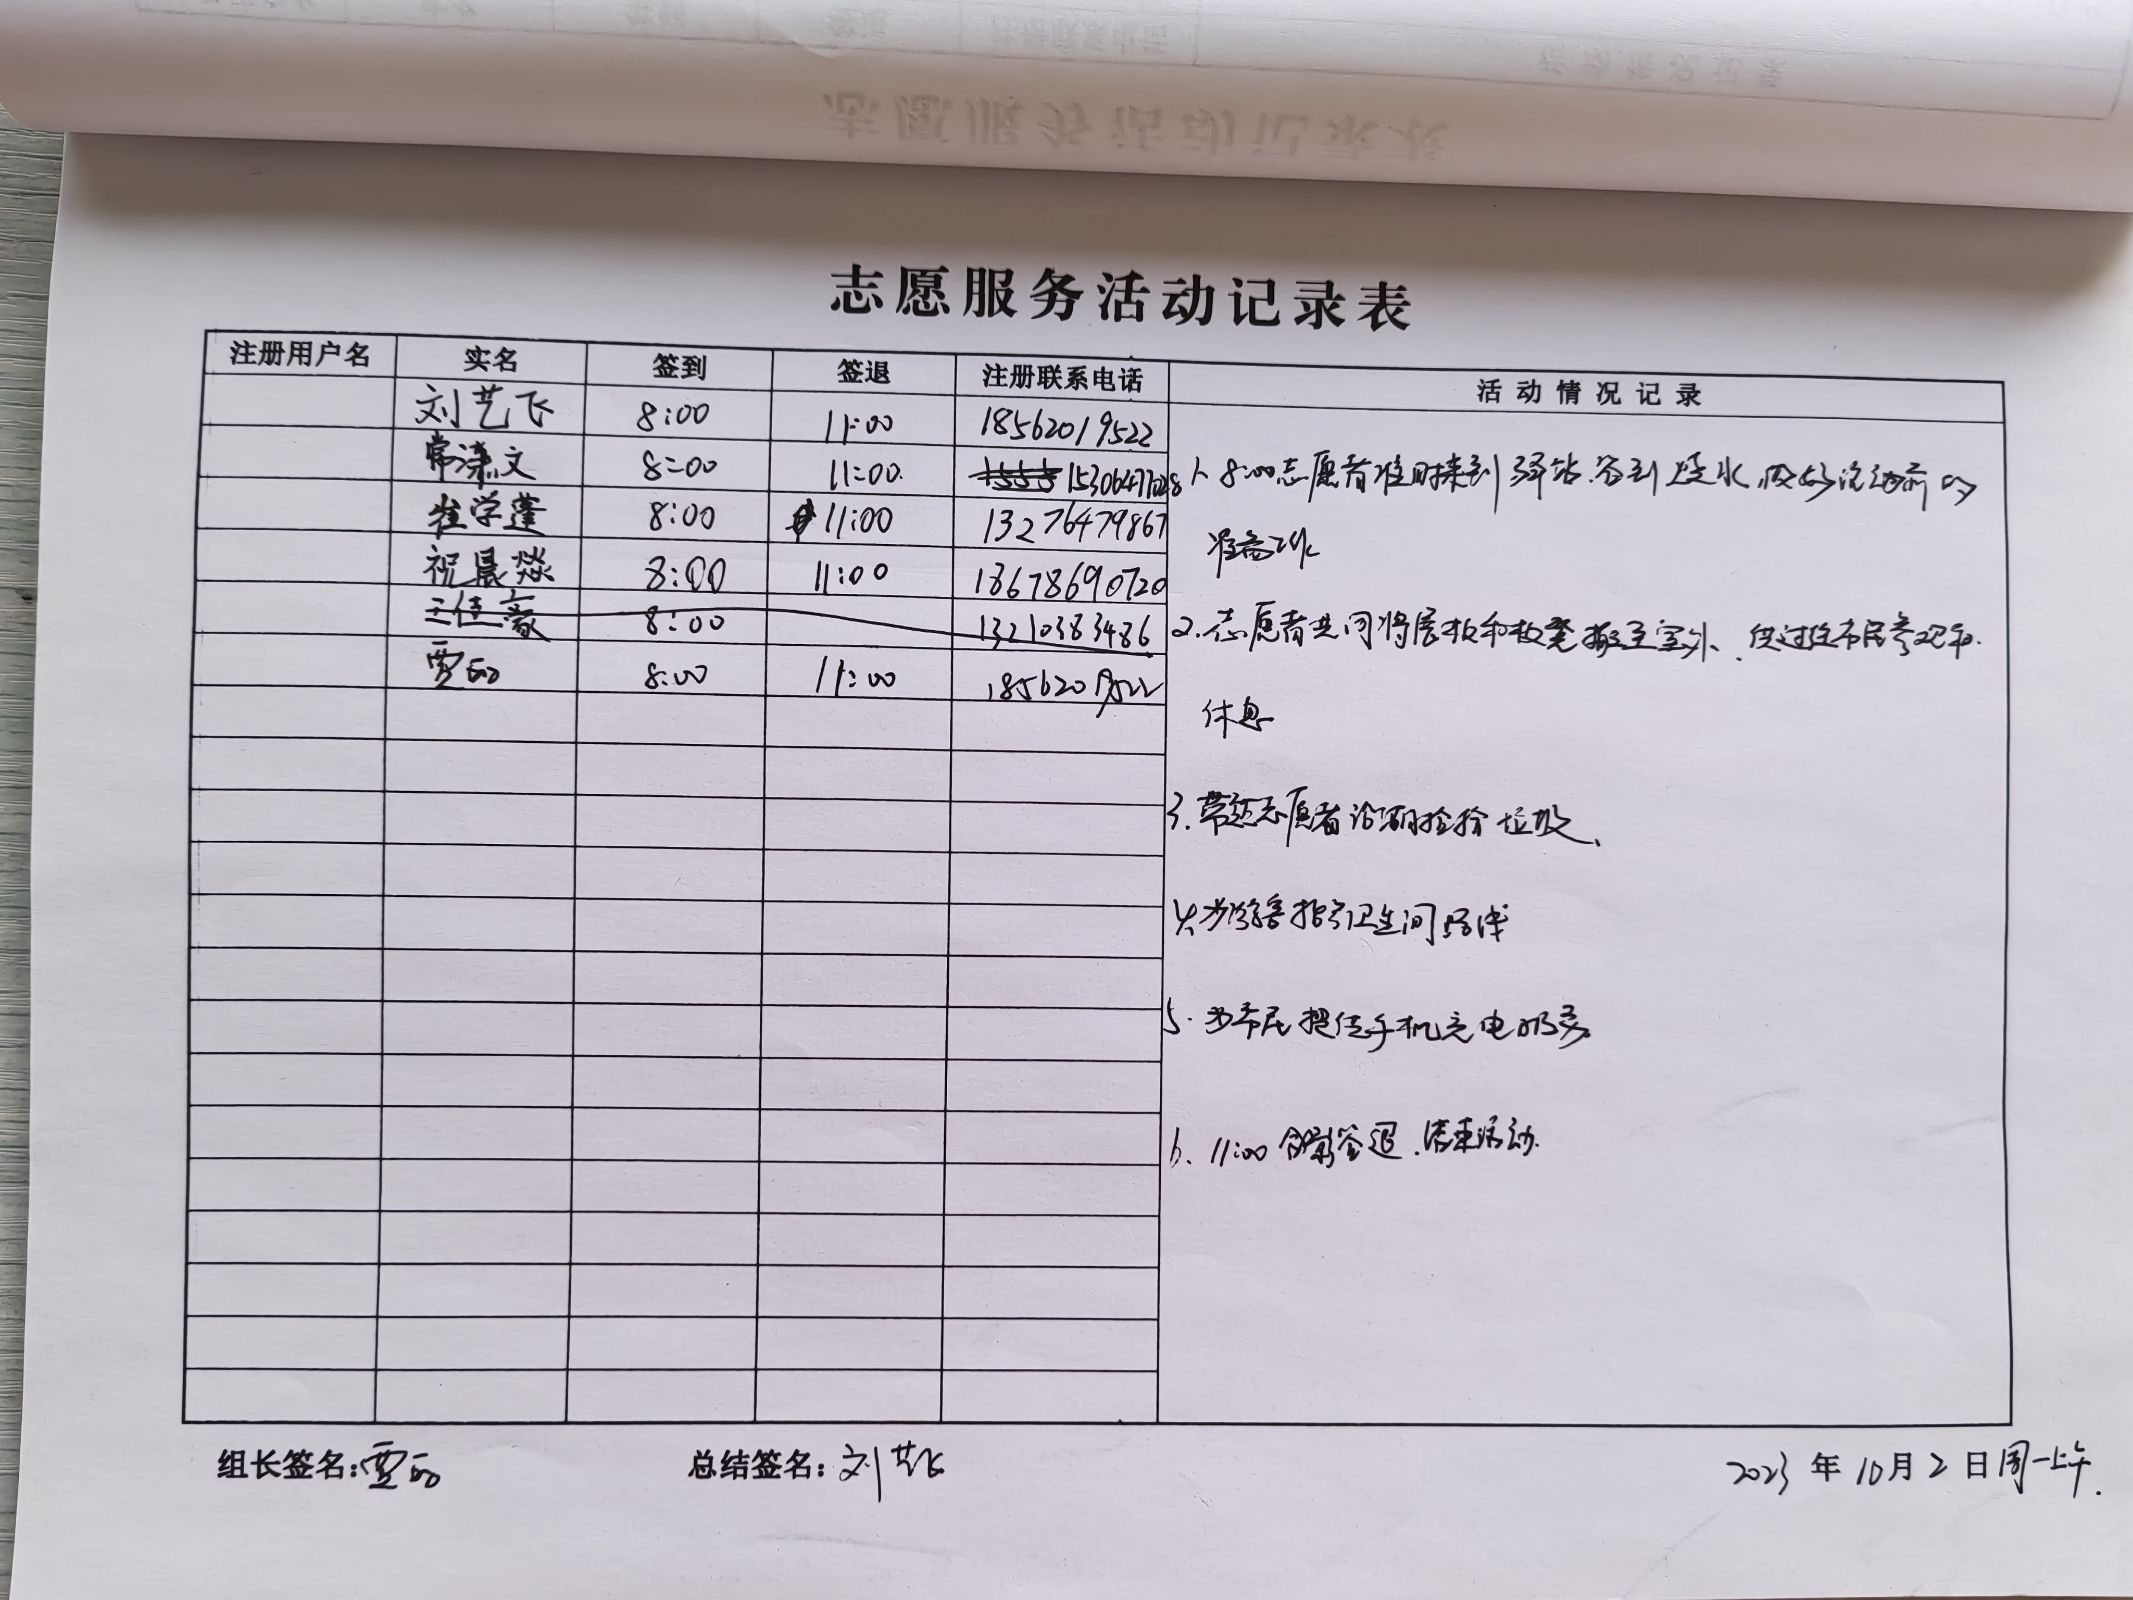 志愿服务活动记录表
注册用户名 实名 签到 签退 注册联系电话 活动情况记录
刘艺飞 8:00 11:00 18562019522
常潆文 8:00 11:00. 15306471028
崔学蓬 8:00 11:00 13276479867
祝晨焱 8:00 11:00 18678690720
王佳豪 8:00 13210383486
贾 8:00 11:00 18562019522
1、8:00志愿者准时来到驿站.签到烧水.做好活动前的
准备工作
2.志愿者共同将展板和板凳搬至室外、供过往市民参观和
休息
3.带领志愿者沿湖捡拾垃圾、
4.为游客指引卫生间路线
5.为市民提供手机充电服务
6、11:00 合影签退.结束活动.
组长签名:贾 总结签名:刘艺飞 2023年10月2日周一上午.